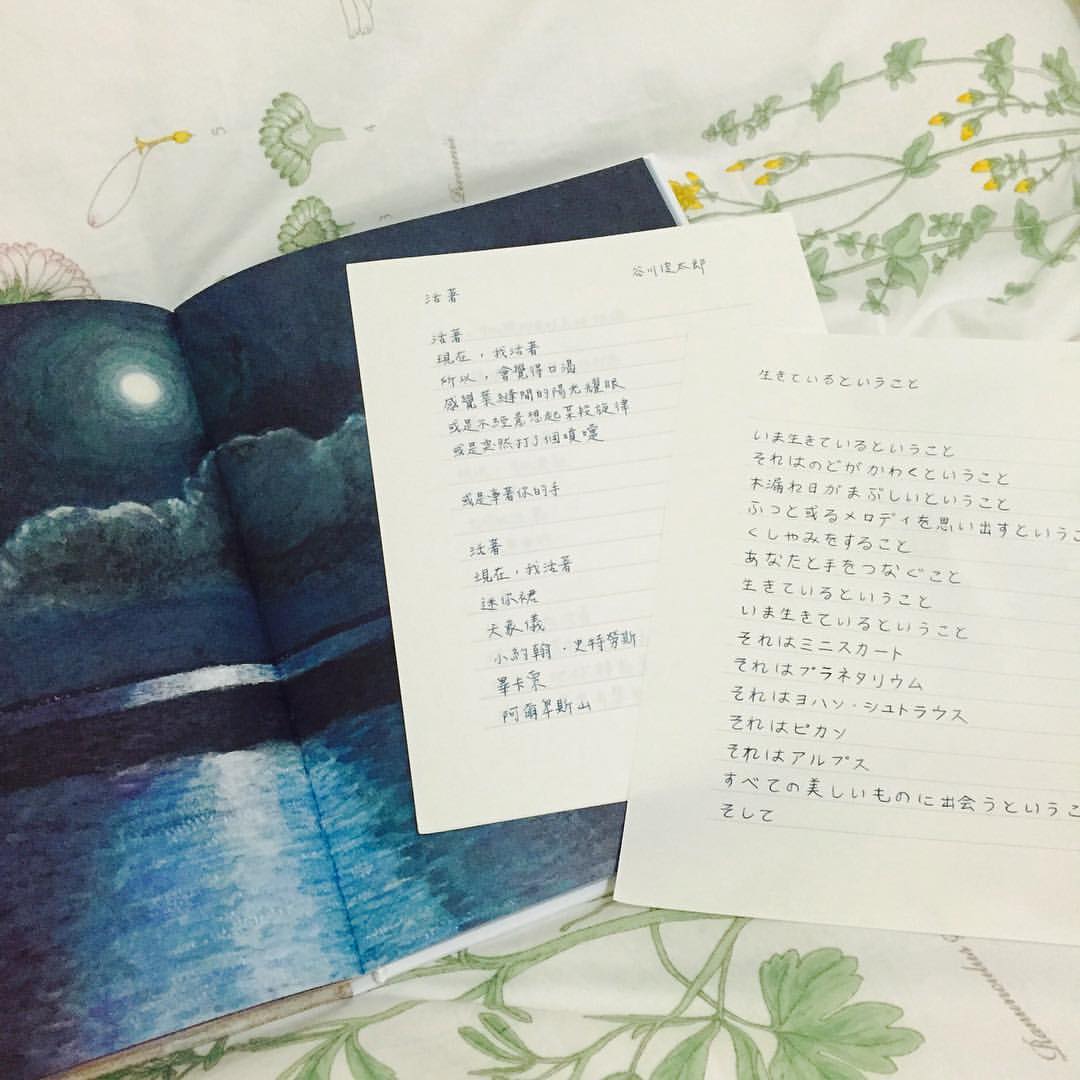 谷川俊太郎
活著
活著
現在，我活著
所以，會覺得口渴
感覺葉縫間的陽光耀眼
或是不經意想起某段旋律
或是突然打了個噴嚏
或是牽著你的手
活著
現在，我活著
迷你裙
天象儀
小約翰・史特勞斯
畢卡索
阿爾卑斯山
生きているということ
いま生きているということ
それはのどがかわくということ
木漏れ日がまぶしいということ
ふっと或るメロディを思い出すというこ
くしゃみをすること
あなたと手をつなぐこと
生きているということ
いま生きているということ
それはミニスカート
それはプラネタリウム
それはヨハン・シュトラウス
それはピカソ
それはアルプス
すべての美しいものに出会うというこ
そして
5
4
3
Ranunculus